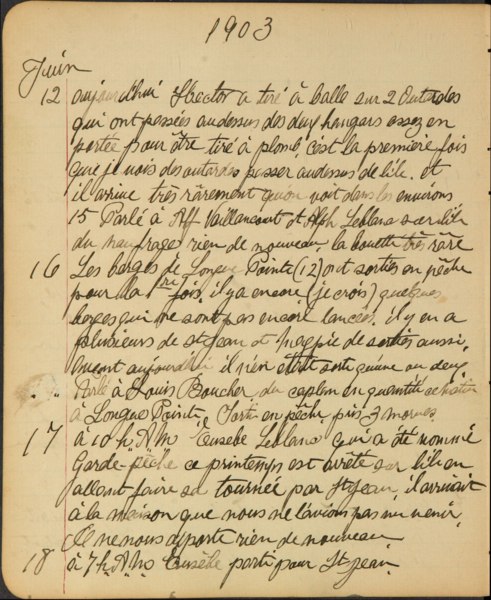 1903
Juin
12 aujourd'hui Hector a tiré à balle sur 2 Outardes
qui ont passées audessus des deux hangars assez en
portée pour être tiré à plomb, c'est la première fois
que je vois des outardes passer audessus de l'ile. et
il arrive très rârement qu'on voit dans les environs
15 Parlé à Alf Vaillancourt et Alph Leblanc
du naufrage rien de nouveau, la bouette très râre
16 Les barges de Longue Pointe (12) ont sorties en pêche
pour la 1re fois. il y a encore (je crois) quelques
barges qui ne sont pas encore lancées. il y en a
plusieurs de St Jean et Magpie de sorties aussi,
aujourd'hui il n'en était sorti qu'une ou deux
" " Parlé à Louis Boucher, du caplan en quantité
à Longue Pointe, Sortis en pêche pris 3 morues
17 à 10 h AM Eusebe Leblanc qui a été nommé
Garde-pêche ce printemps est arrêté sur l'ile en
allant faire sa tournée par St Jean, il arrivait
à la maison que nous ne l'avions pas vu venir,
Il ne nous apporte rien de nouveau
18 à 7 h AM Eusèbe parti pour St Jean.